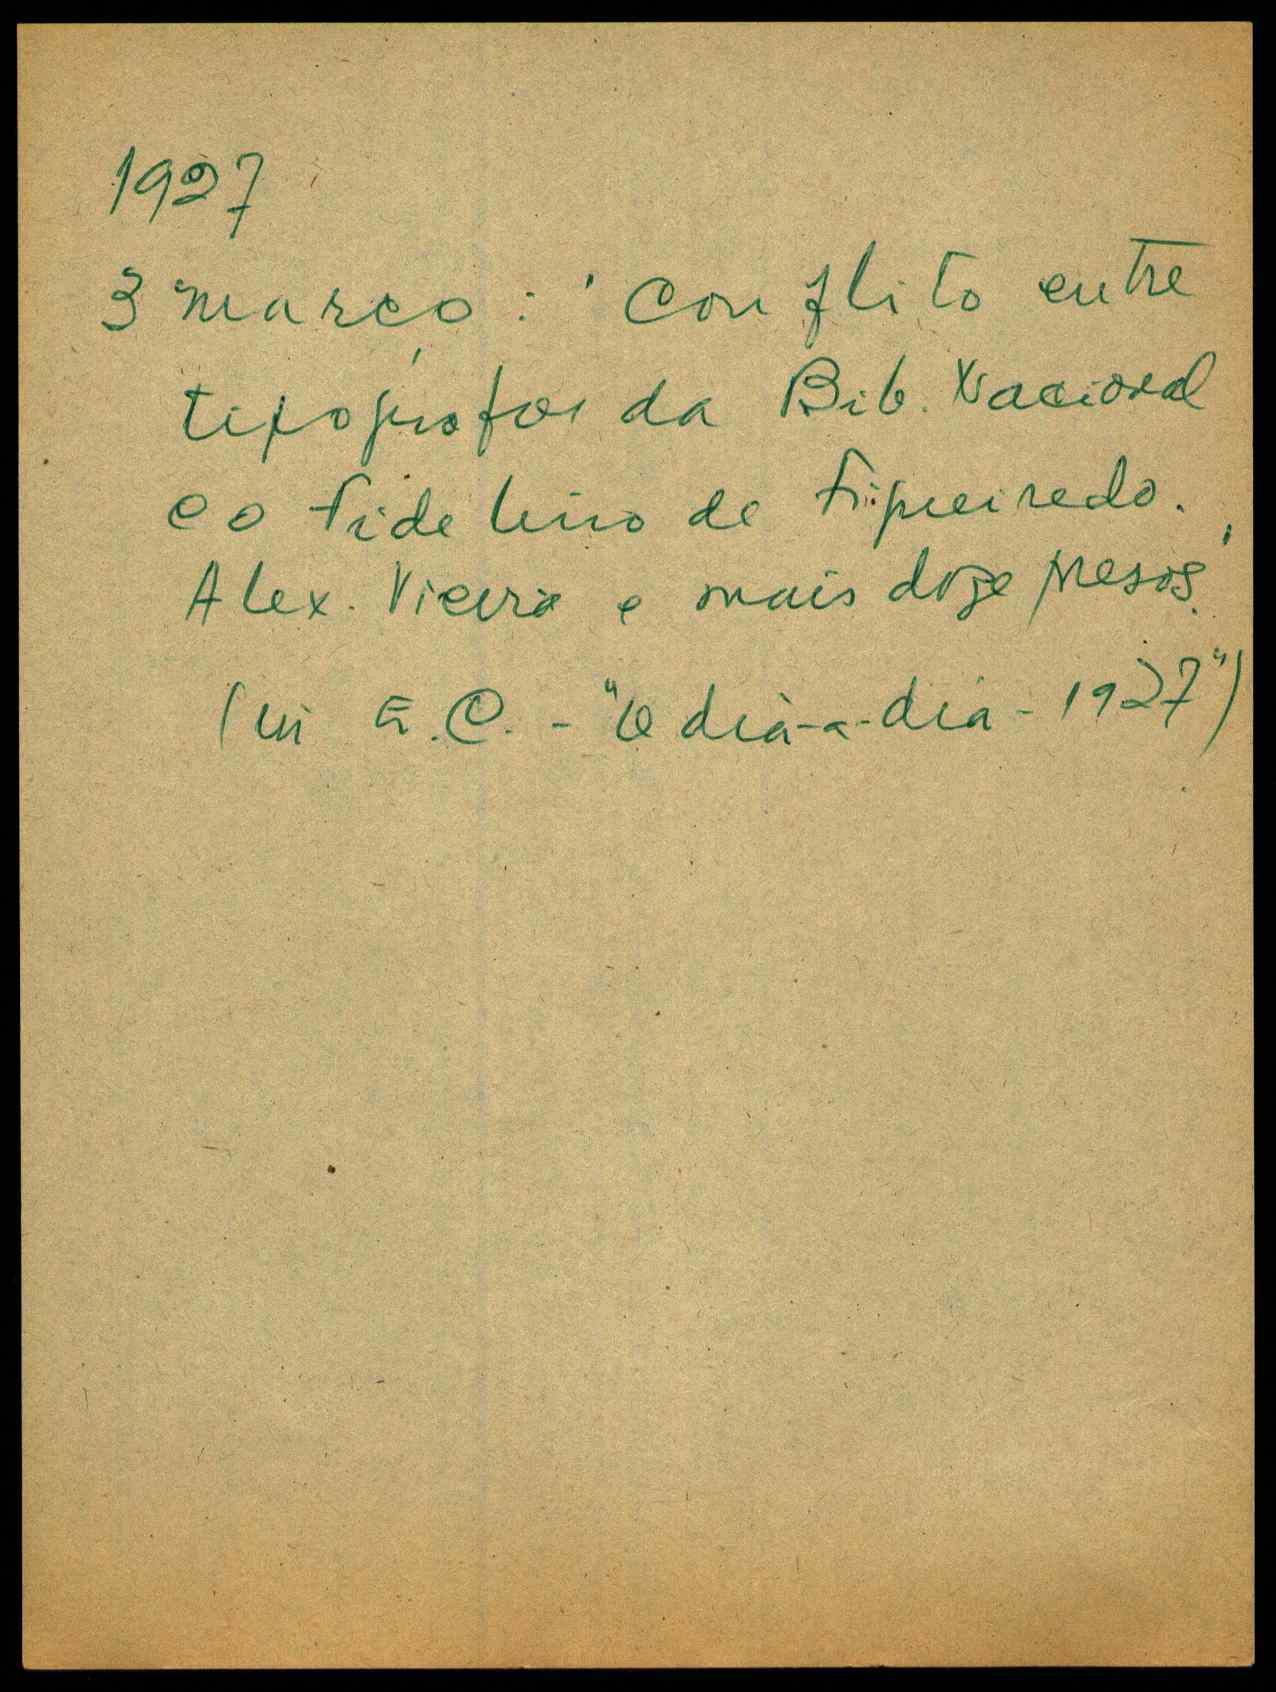 1927
3 março: 'Conflito entre
tipógrafos da Bib. Nacional
e o Fidelino de Figueiredo.
Alex. Vieira e mais doze presos.'
(in E.C. - "O dia-a-dia - 1927")